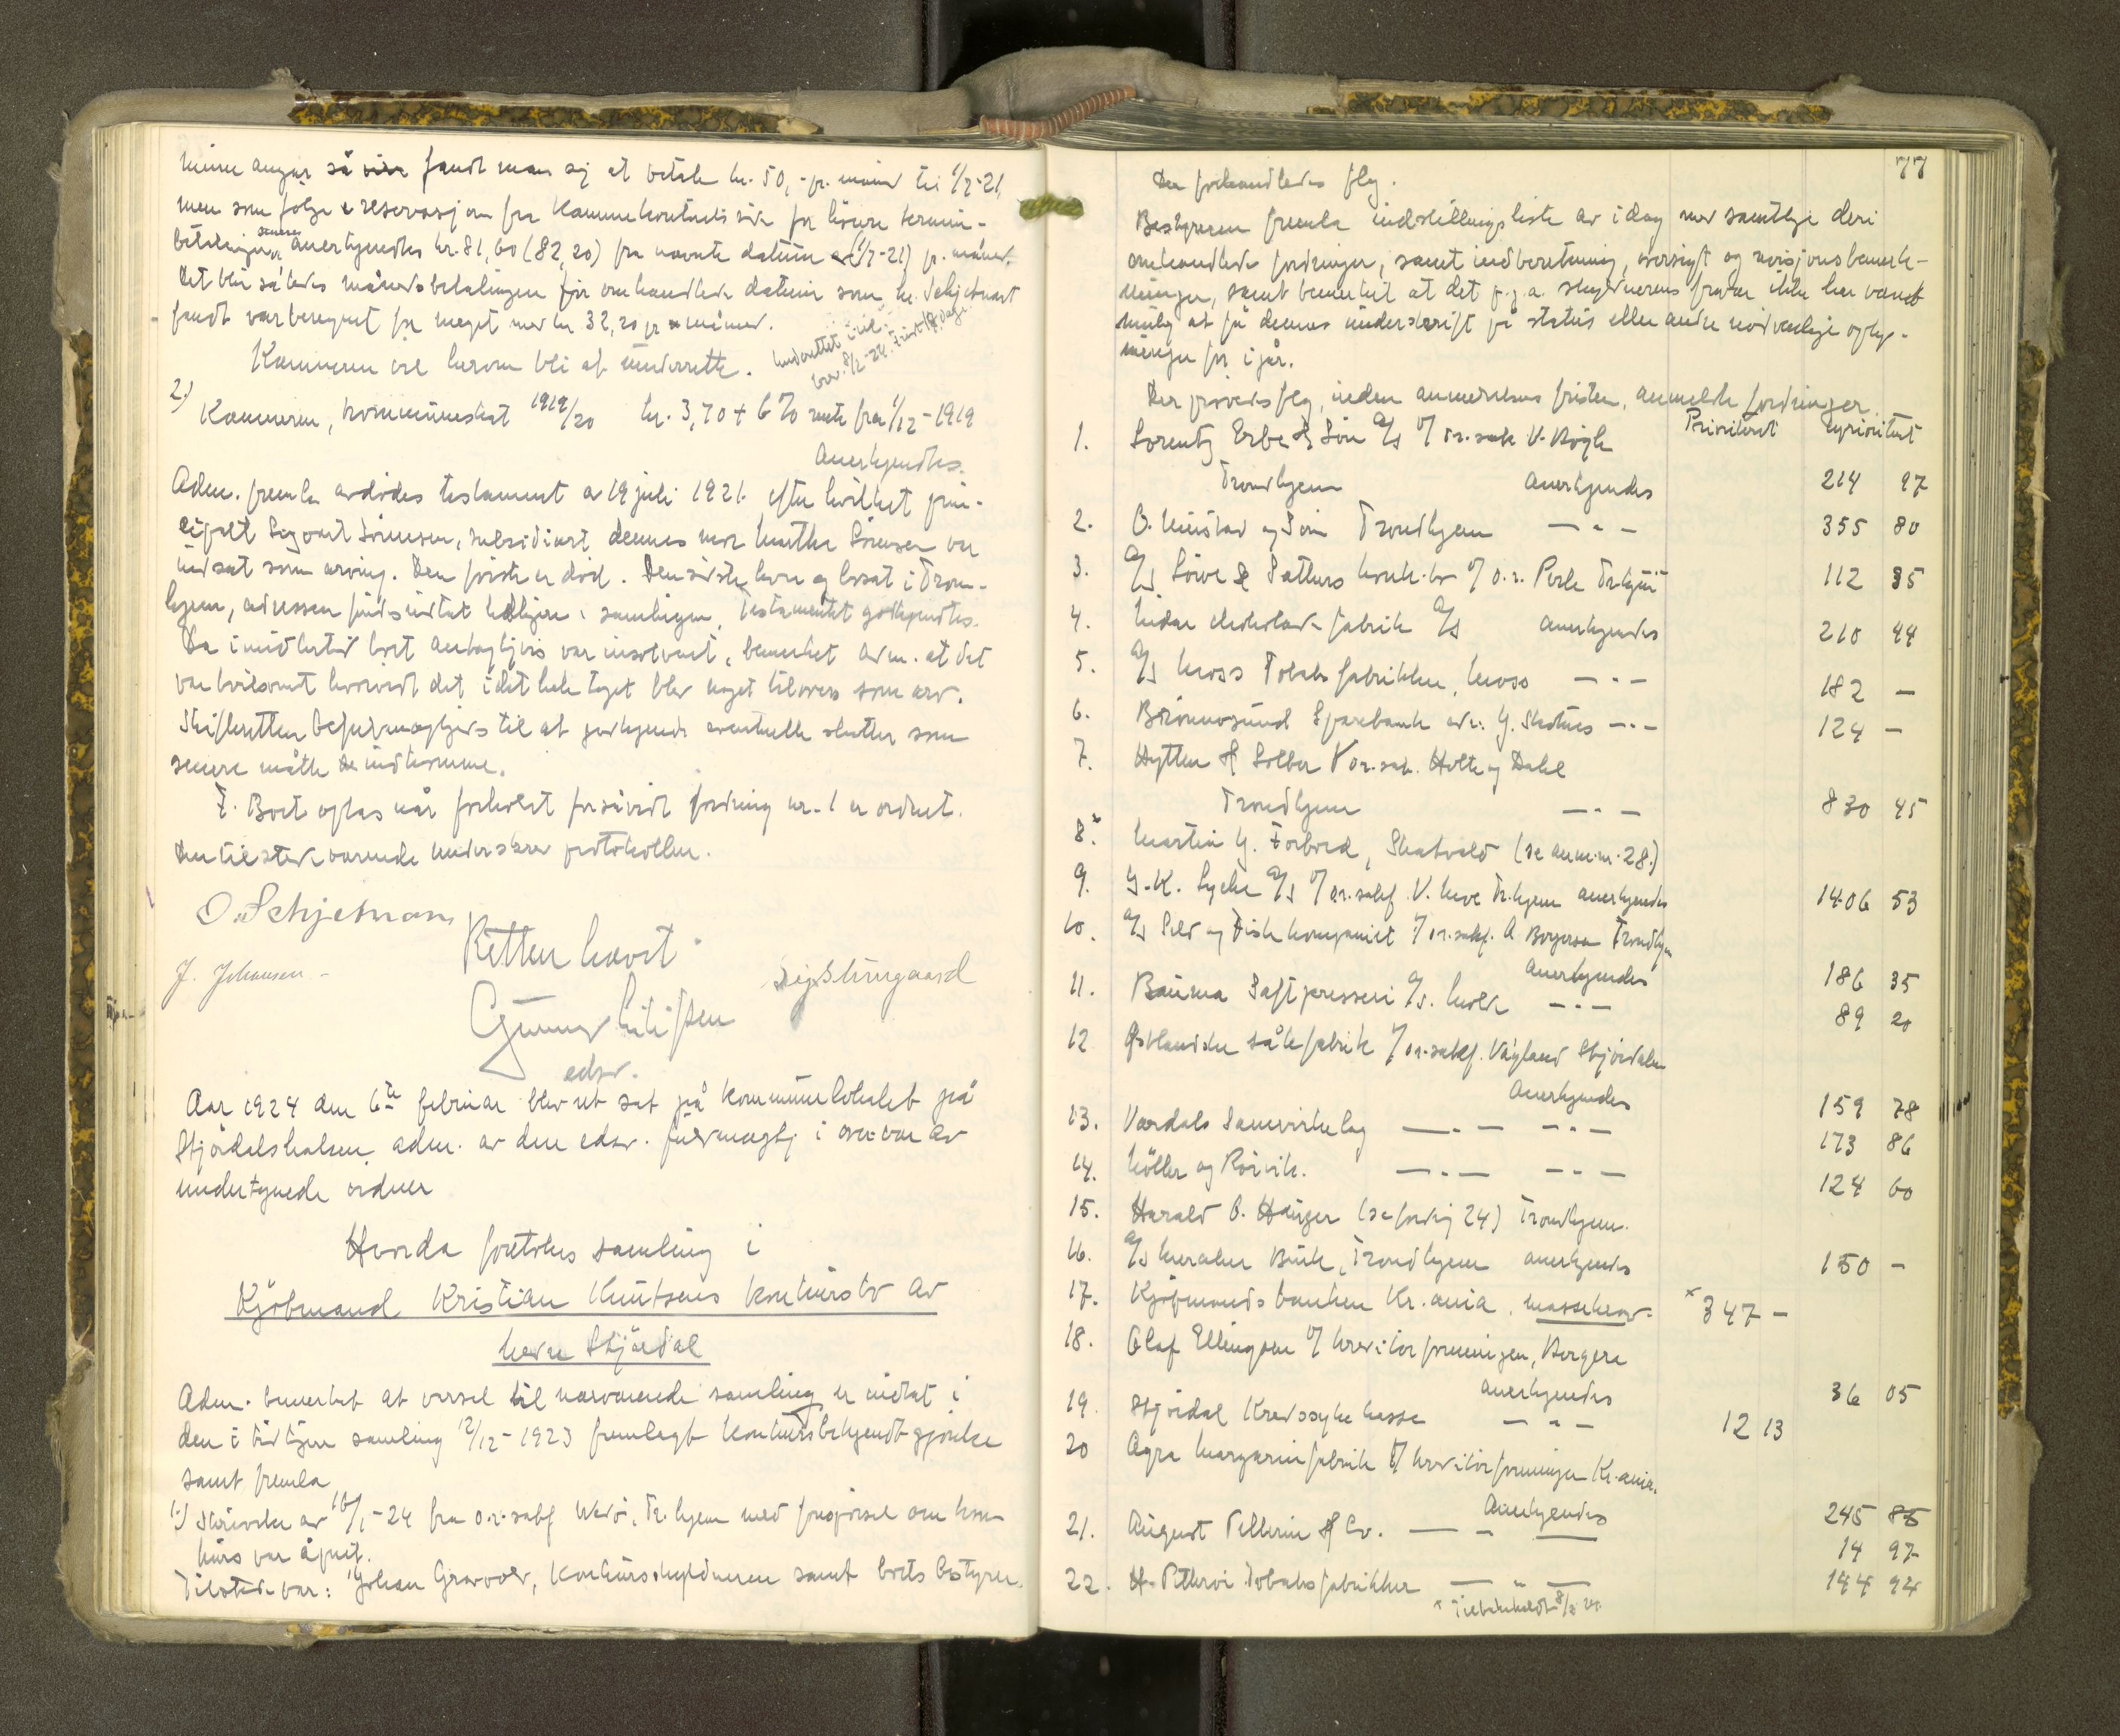 minne angår så fandt man sig at betale kr. 50,- pr. måned til 1/7-21,
men som følge reservasjon fra Kæmnerkontorets side for høiere termin-
betalinger senere anerkjendtes kr. 81,60 (82,20) fra nævnte datum (1/7-21) pr. måned.
Det blir således månedsbetalingen før omhandlede datum som hr. Schjetnan
fandt var beregnet for meget med kr 32,20 pr måned.
Kæmneren vil herom bli at underrette. Underrettet i rek.
brev 8/2-24. Frist 14 dage
2.) Kæmneren, kommuneskat 1919/20 kr. 3,70 + 6 % rente fra 1/12-1919
Anerkjendtes.
Adm. fremla avdødes testament av 19 juli 1921 efter hvilket prin-
cipalt Sørensen, subsidiært dennes mor Marthe Sørensen var
indsat som arving. Den første er død. Den sidste lever og bosat i Trond-
hjem, adressen findes indtat tidligere i samlingen. Testamentet godkjendtes.
Da imidlertid boet antagligvis var insolvent, bemerket adm. at det
var tvilsomt hvorvidt det i det hele taget blev noget tilovers som arv.
Skifteretten befuldmægtiges til at godkjende eventuelle skatter som
senere måtte indkomme.
F. Boet optas når forholdet forsåvidt fordring nr. 1 er ordnet.
Den tilstedeværende underskrev protokollen.
O. Schjetnan
Retten hævet
J. Johansen
Sig. Skungaard
Gunnar
edsv.
Aar 1924 den 6te februar blev ret sat på kommunelokalet på
Stjørdalshalsen adm. av den edsv. fuldmægtig i overvær av
undertegnede vidner
Hvorda foretokes samling i
Kjøbmand Kristian Knutsens konkursbo av
Nedre Stjørdal
Adm. bemerket at varsel til nærværende samling er indtat i
den i tidligere samling 12/12-1923 fremlagt konkursbekjendtgjørelse
samt fremla
1.) Skrivelse av 16/1-24 fra o.r.sakf. Tr.hjem med forespørsel om kon-
kurs var åpnet.
Tilstede var: Johan Gravvold, konkursskyldneren samt boets bestyrer.
77
Der forhandledes flg.
Bestyreren fremla indstillingsliste av idag med samtlige deri
omhandlede fordringer, samt indberetning, oversigt og revisjonsbemerk-
ninger, samt bemerket at det p.g.a. skyldnerens fravær ikke har været
mulig at få dennes underskrift på status eller andre nødvendige oplys-
ninger før igår.
Der prøvedes flg. inden anmeldelses fristen anmeldte fordringer.
Prioritert Uprioritert
1. Lorentz Erbe & Søn A/S v/ o.r.sak V. Bøgh
Trondhjem Anerkjendes 214 97
2. O. Meistad og Søn Trondhjem — " — 355 80
3. A/S Löwe & Dattens konk.bo v/ o.r. Perle Tr.hjem 112 35
4. Nidar chokoladefabrik A/S anerkjendes 210 44
5. A/S Moss Tobaksfabrikker, Moss — " — 182 —
6. Brönnøsund Sparebank — " — 124 —
7. Hytten & Solber v/ o.r.sak. Holte og Dahl
Trondhjem — " — 830 45
8.x Martin G. Forbord, Skatvold (se anm. nr. 28.)
9. J.K. Lykke A/S v/ o.r.sakf. V. Tr.hjem anerkjendes 1406 53
10. A/S Sild og Fiskekompaniet v/ o.r.sakf. A Borgersen Trondhjem
anerkjendes 186 35
11. Bauma Saftpresseri A/S. Molde — " — 89 20
12 Østlandske såpefabrik v/ o.r.sakf. Vågland Stjørdalen
Anerkjendes 159 78
13. Værdals Samvirkelag — " — — " — 173 86
14. Møller og Rørvik. — " — — " — 124 60
15. Harald O. Hauger (se fordrg 24) Trondhjem.
16. A/S Meraker Bruk, Trondhjem anerkjendes 150 —
17. Kjøbmandsbanken Kr.ania. massekrav. x 347 —
18. Olaf Ellingsen v/ kreditorforeningen, Bergen
anerkjendes 36 05
19. Stjørdal Kredssykekasse — " — 12 13
20 Agra Margarinfabrik v/ kreditorforeningen Kr.ania.
Anerkjendes 245 85
21. August Pellerin & Co. — " — 14 97
22. H. Petterøe Tobaksfabrikker — " — 144 94
x Tilbakekaldt 8/2 24.